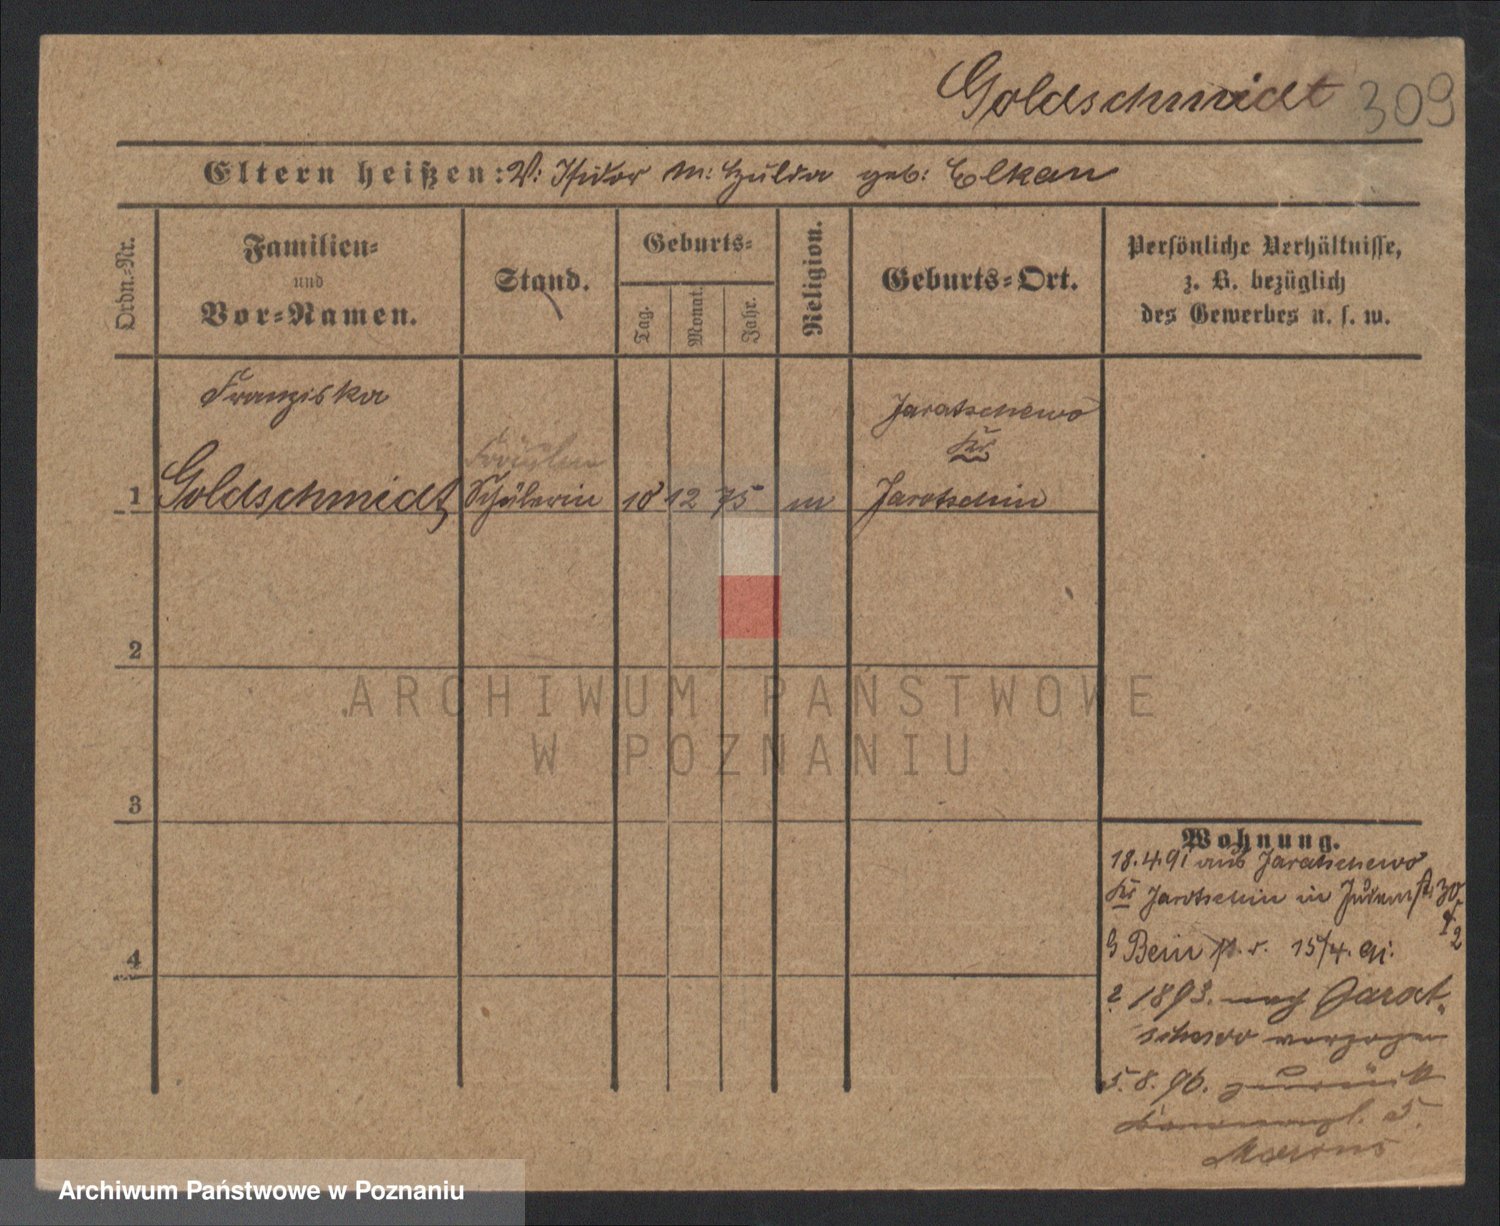 Goldschmidt 309
Eltern heißen: V: Isidor M: Hulda geb: Elkan
Ordn.-Nr.
Familien-
und
Vor-Namen.
Stand.
Geburts-
Tag.
Monat.
Jahr.
Religion.
Geburts-Ort.
Persönliche Verhältnisse,
z. B. bezüglich
des Gewerbes u. s. w.
Franziska
Jaratschewo
Kr
Fräulein
1 Goldschmidt Schülerin 18 12 75 m Jarotschin
2
3
4
ARCHIWUM PAŃSTWOWE
W POZNANIU
Wohnung.
18.4.91 aus Jaratschewo
Kr Jarotschin in Judenstr 30
2
Bein 15/4. 91.
2. 1893. nach Jarat-
schewo verzogen
5. 8. 96. zurück
5.
Marcus
Archiwum Państwowe w Poznaniu